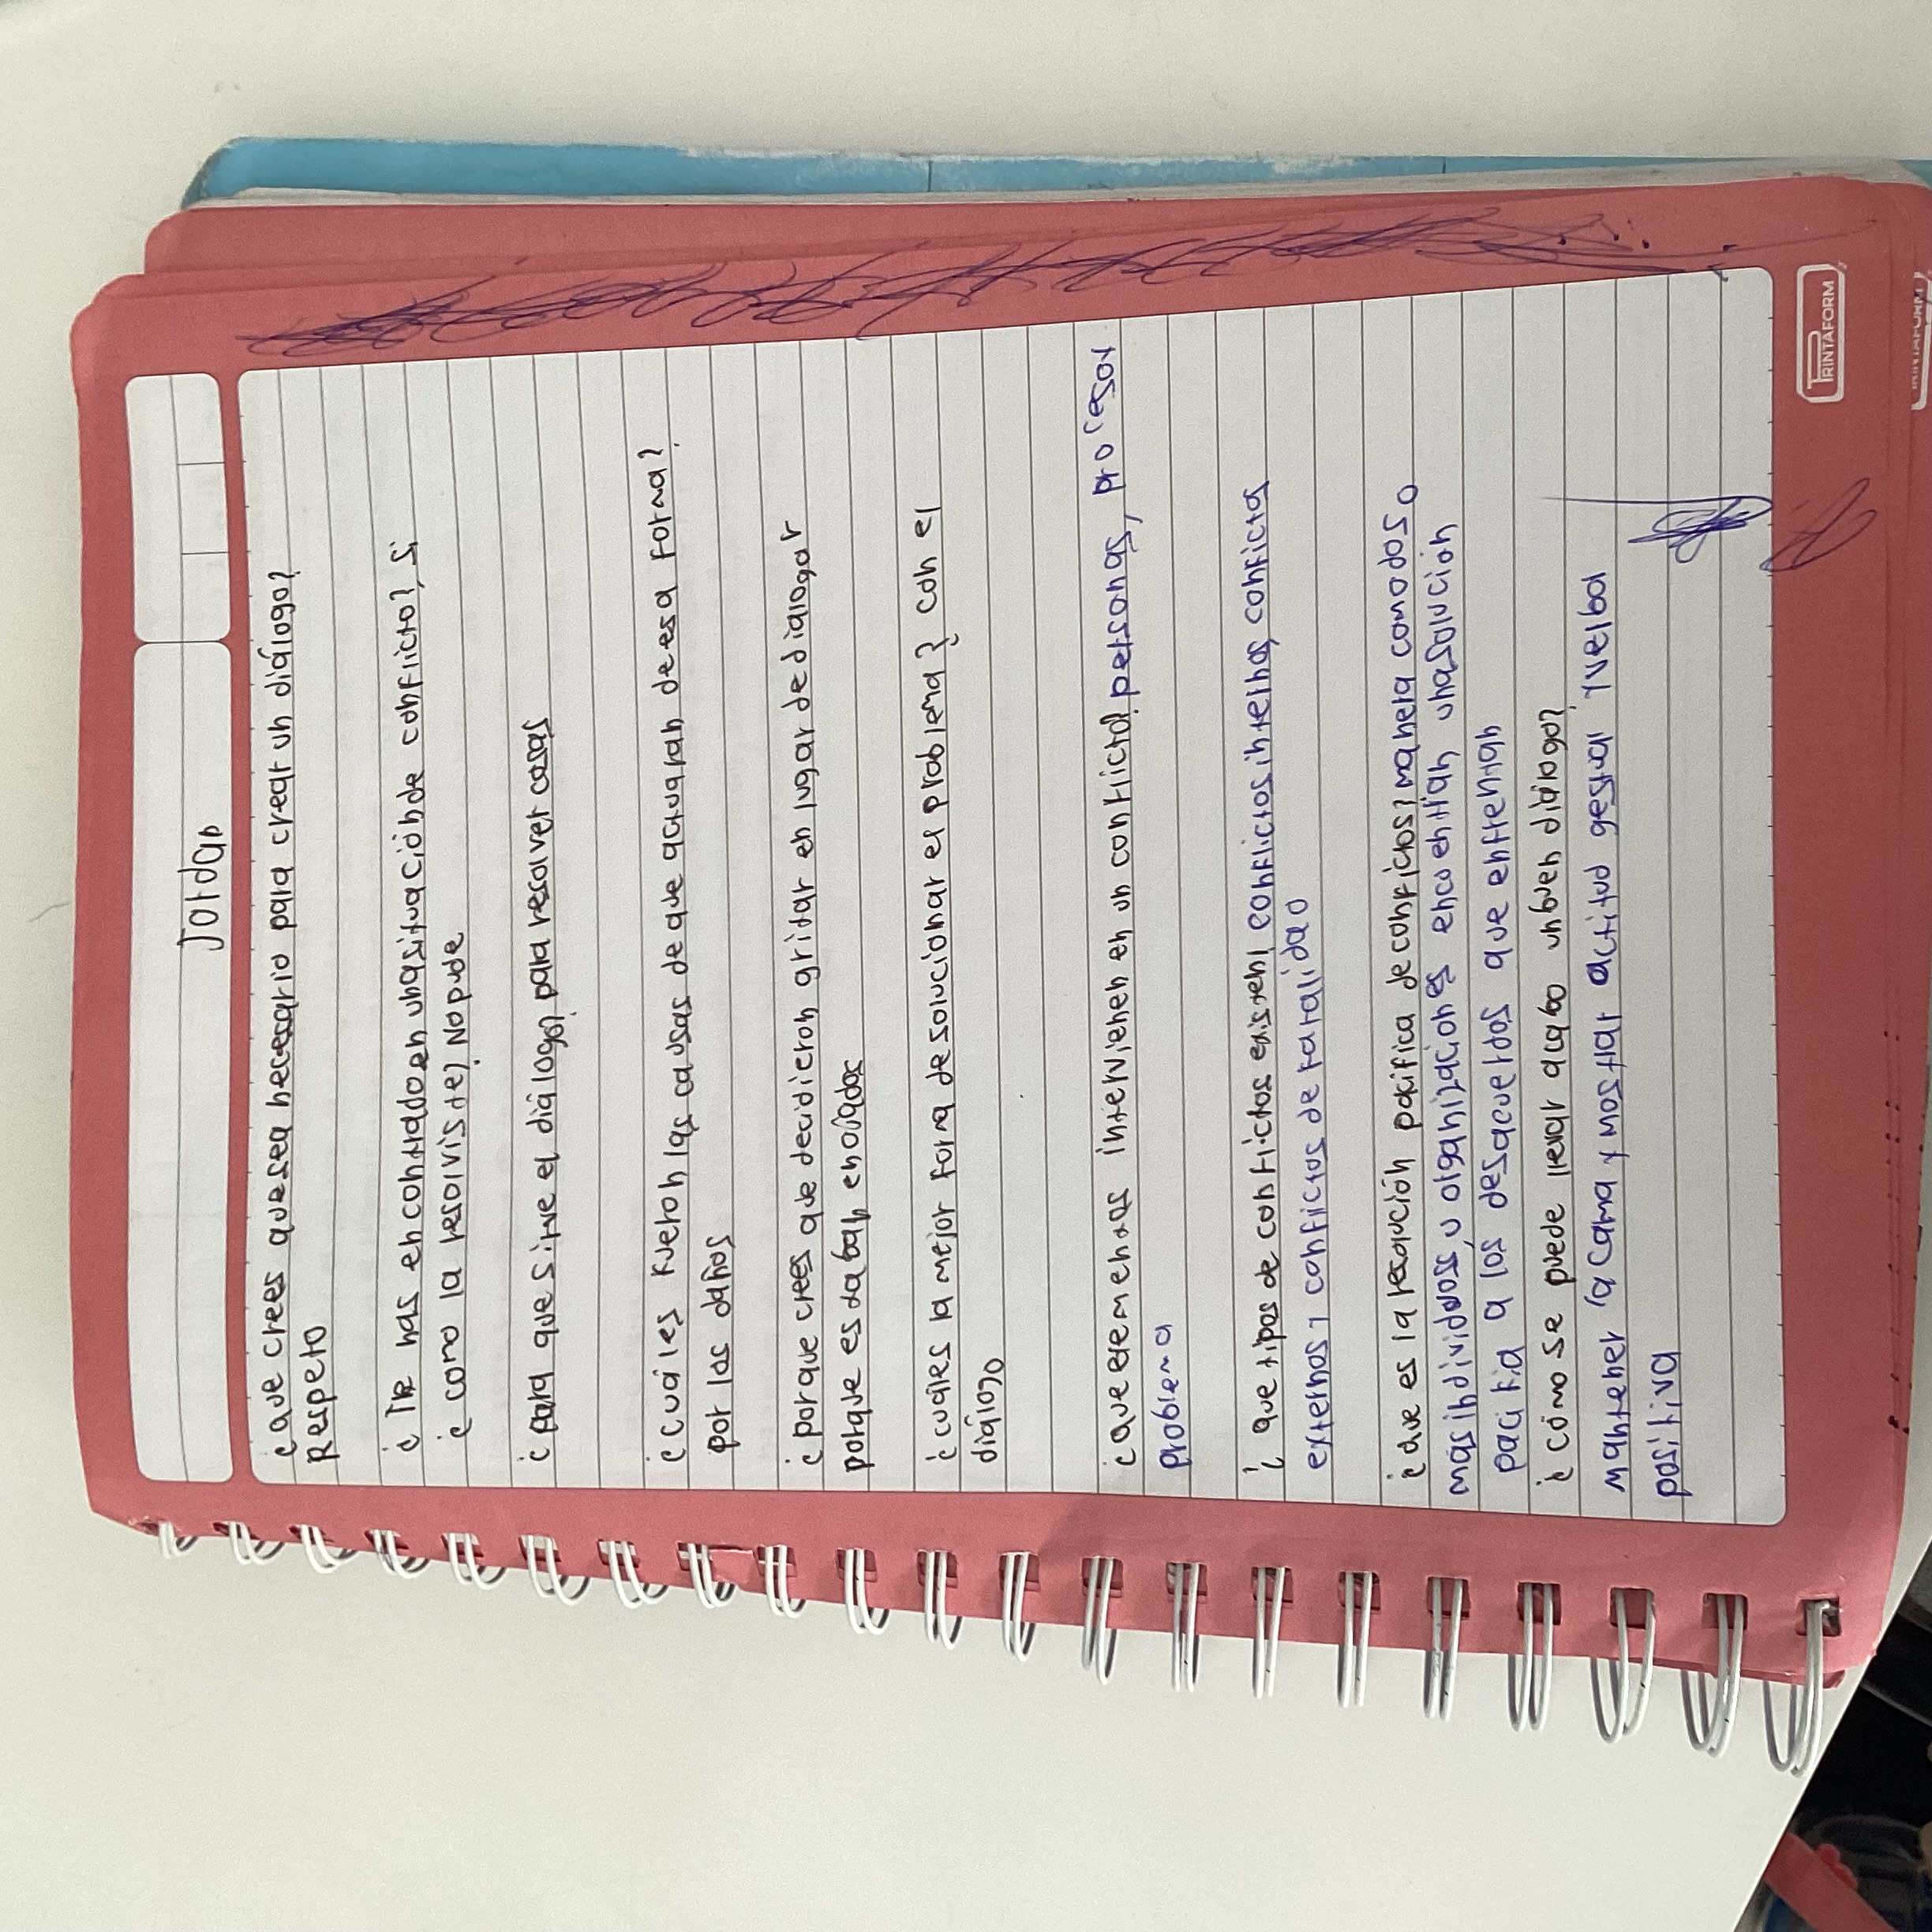 Jordan
¿que crees que sea necesario para crear un diálogo?
Respeto
¿Te has encontrado en una situación de conflicto? Si
¿como la resolviste? No pude
¿para que sirve el diálogo? para resolver cosas
¿cuáles fueron las causas de que actuaran de esa forma?
por los daños
¿porque crees que decidieron gritar en lugar de dialogar
porque estaban enojados
¿cuáles la mejor forma de solucionar el problema? con el
diálogo
¿que elementos intervienen en un conflicto? personas, procesos
problema
¿que tipos de conflictos existen? conflictos internos, conflictos
externos y conflictos de
¿que es la resolución pacifica de conflictos? manera como dos o
mas individuos u organizaciones encuentran una solución
pacifia a los desacuerdos que enfrentan
¿cómo se puede llevar acabo un buen diálogo?
mantener la cama y mostrar actitud gestual y verbal
positiva
PRINTAFORM